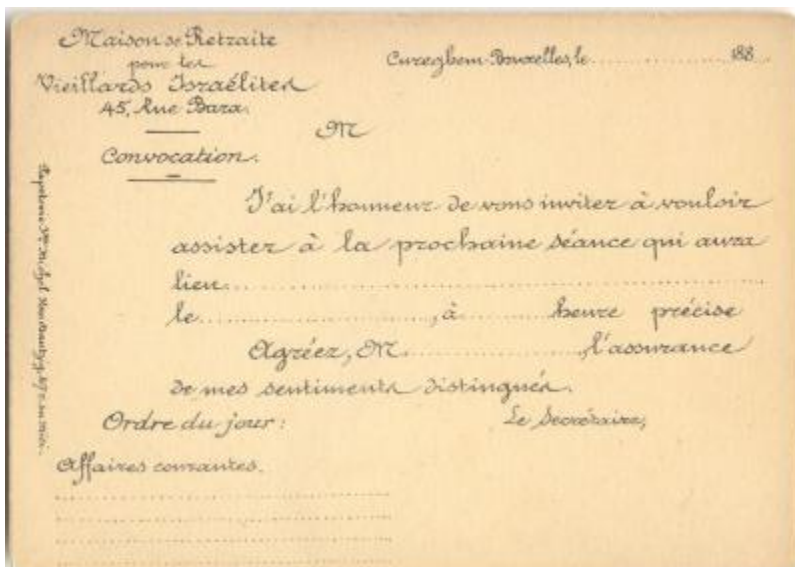 Maison de Retraite
pour les
Vieillards Israélites
45, Rue Bara.
Cureghem-Bruxelles, le ........................ 188
Convocation.
M
J'ai l'honneur de vous inviter à vouloir
assister à la prochaine séance qui aura
lien..............................................................
le............................, à ........ heure précise
Agréez, M....................., l'assurance
de mes sentiments distingués.
Ordre du jour :
Le Secrétaire,
Affaires courantes.